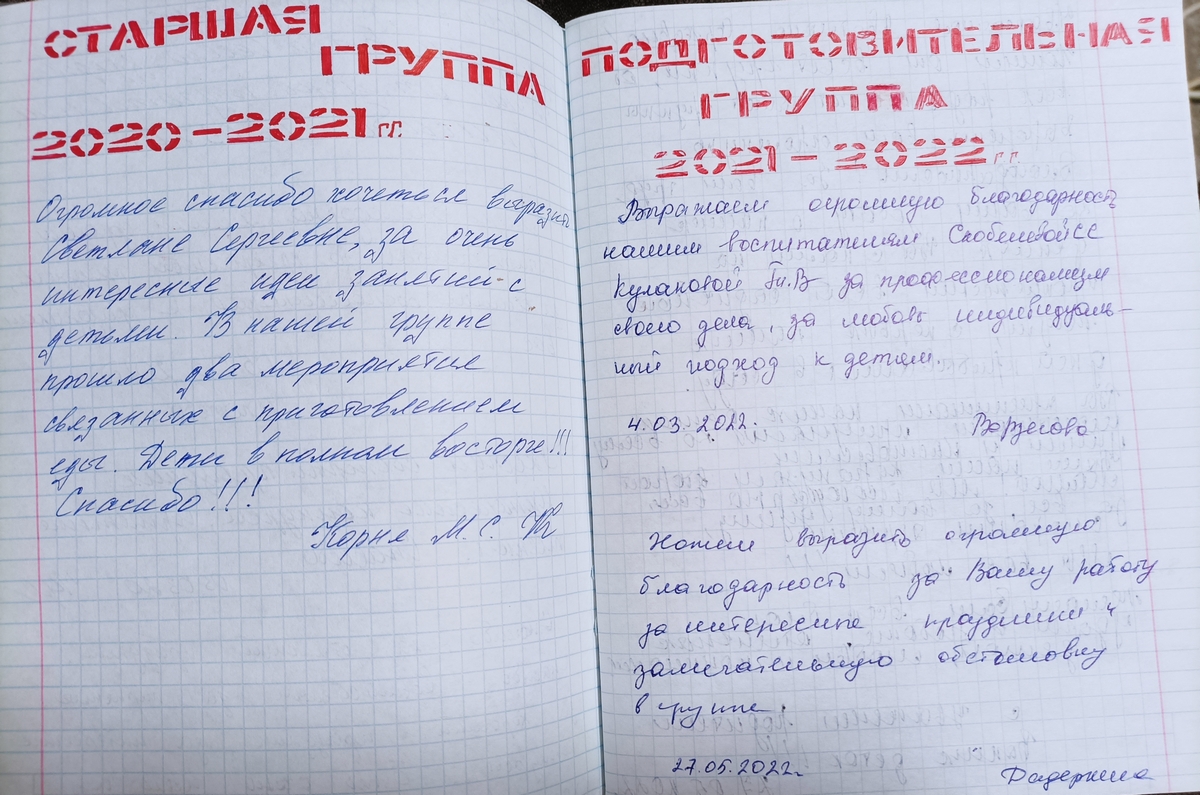 СТАРШАЯ
ГРУППА
2020-2021 г.г.
Огромное спасибо хочеться выразить
Светлане Сергеевне, за очень
интересные идеи занятий с
детьми. В нашей группе
прошло два мероприятия
связанных с приготовлением
еды. Дети в полном восторге!!!
Спасибо!!!
Корне М.С.
ПОДГОТОВИТЕЛЬНАЯ
ГРУППА
2021-2022 г.г.
Выражаем огромную благодарность
нашим воспитателям
Кулаковой за профессионализм
своего дела, за любовь индивидуаль-
ный подход к детям.
4.03.2022.
Хотим выразить огромную
благодарность за Вашу работу
за интересные праздники и
замечательную обстановку
в группе.
27.05.2022г.